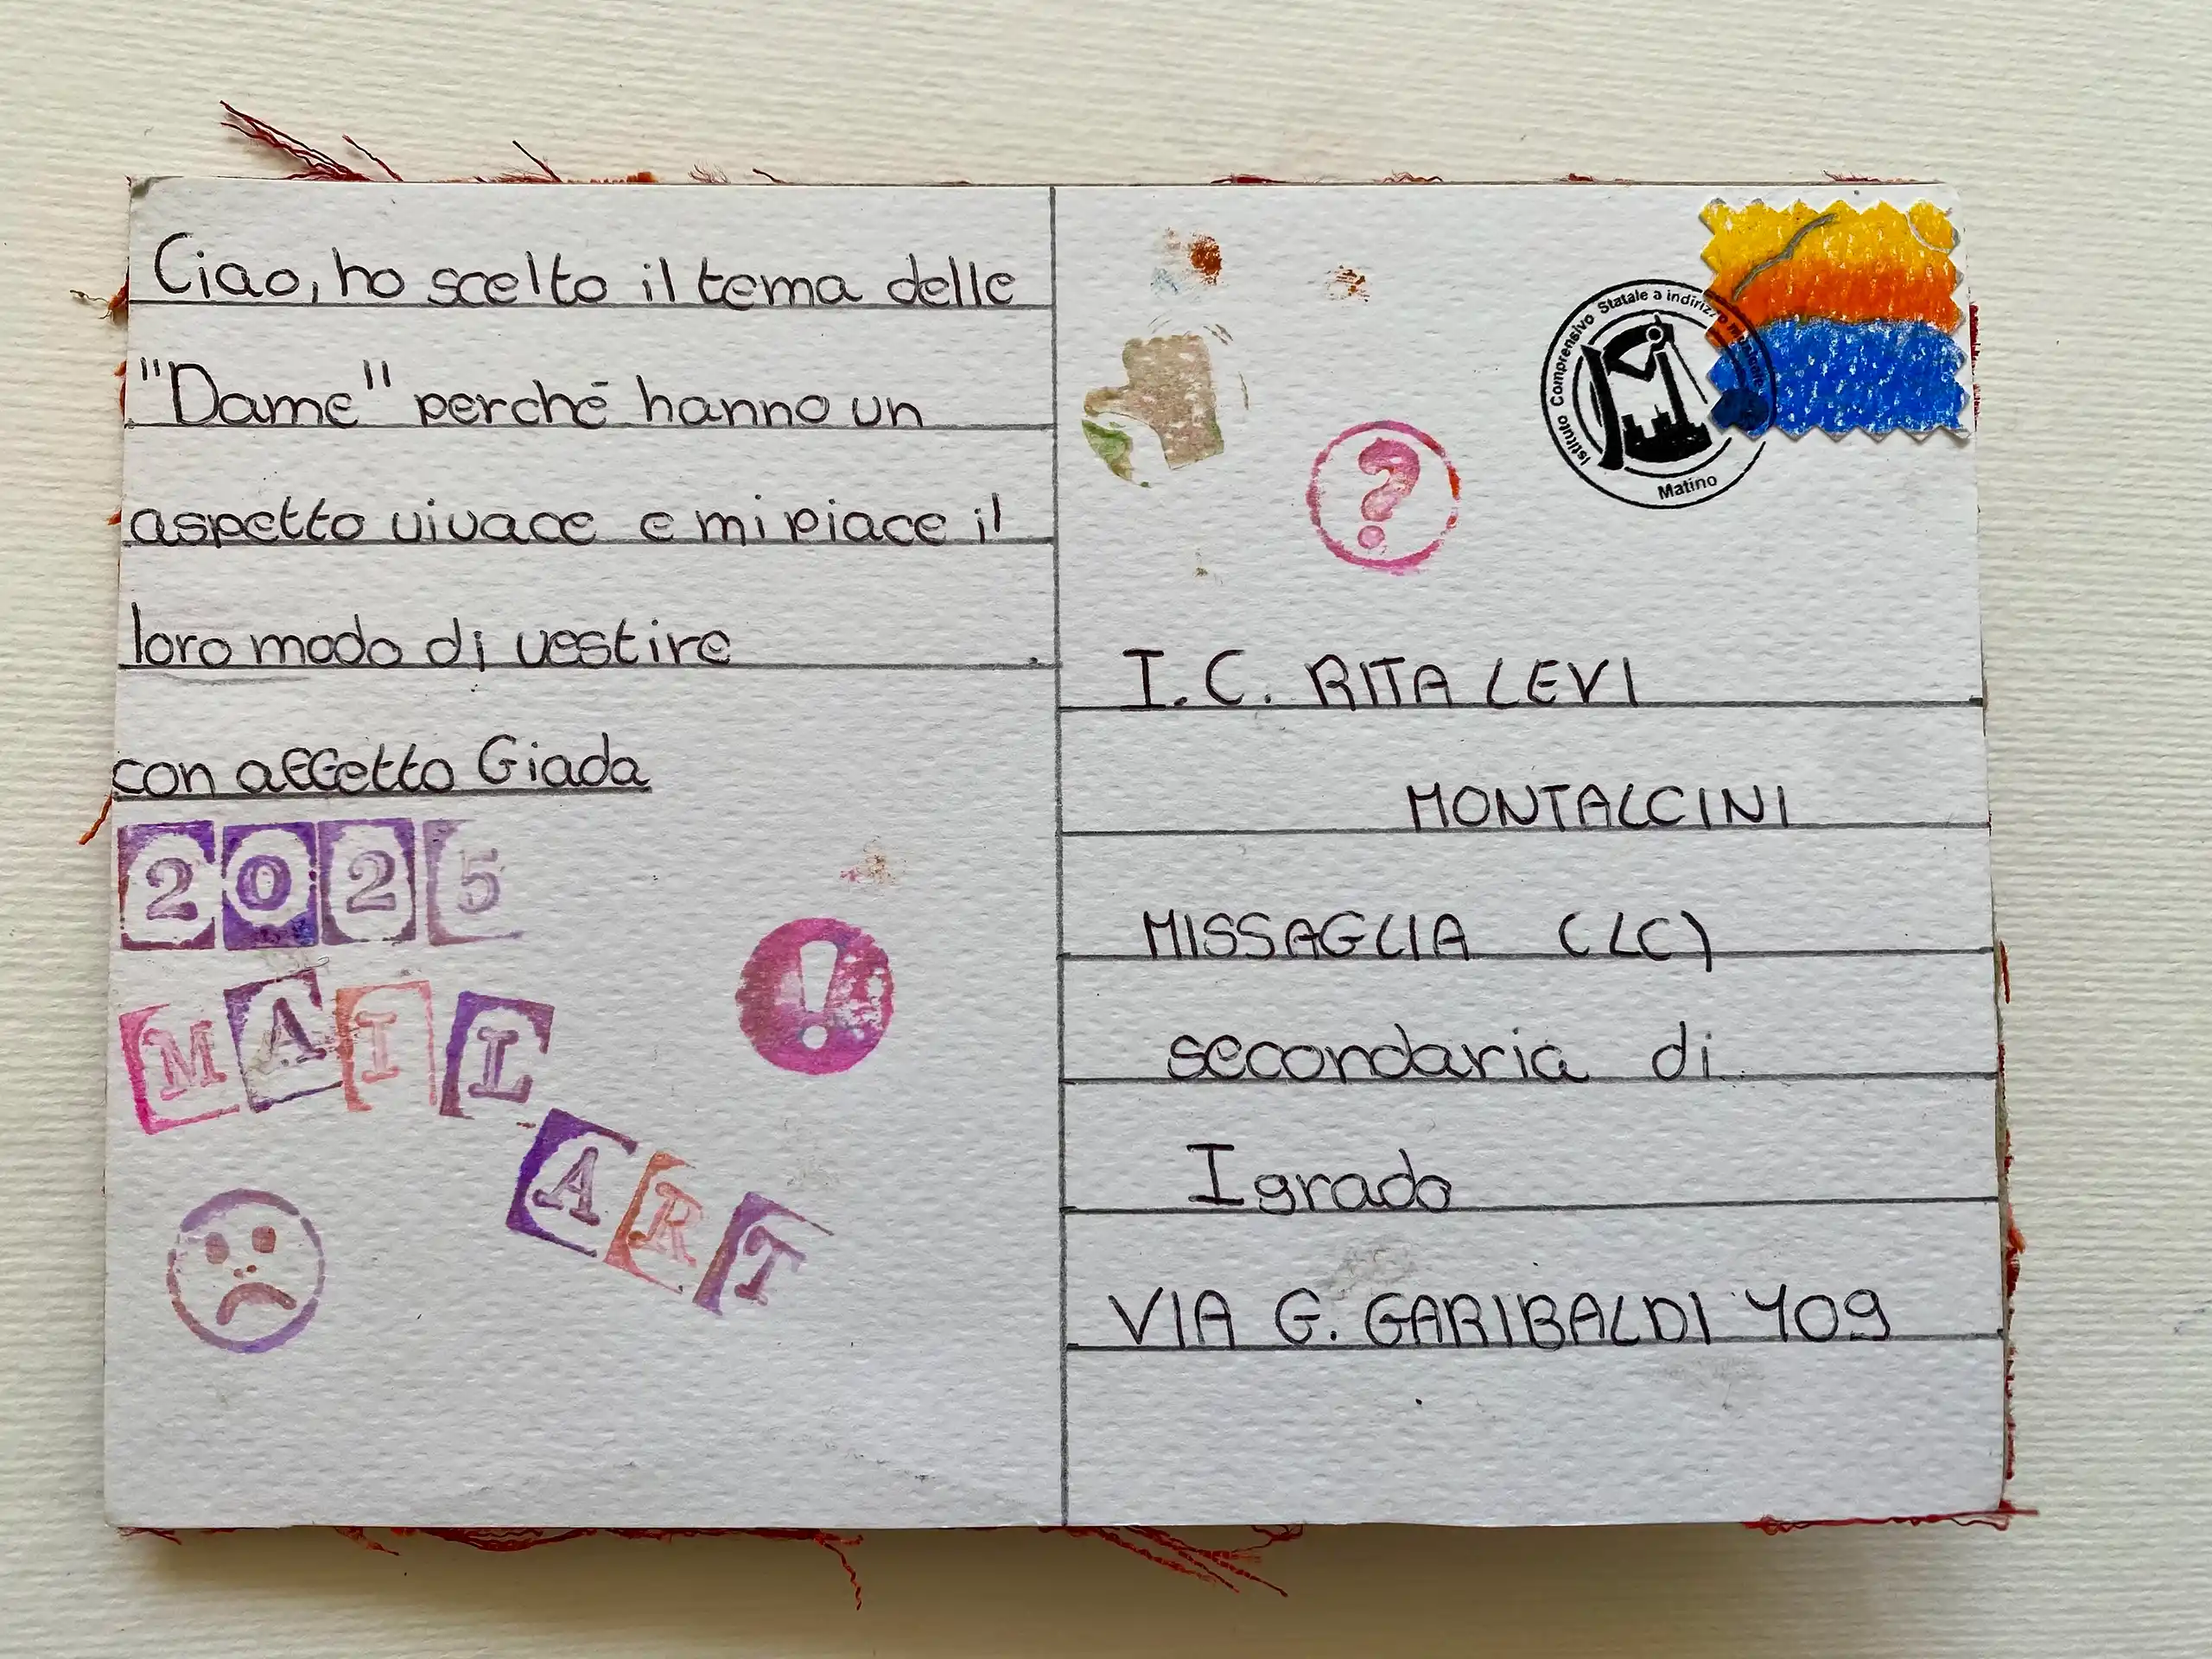 Ciao, ho scelto il tema delle
"Dame" perché hanno un
aspetto vivace e mi piace il
loro modo di vestire
con affetto Giada
2025
MAIL
ART
Istituto Comprensivo Statale a indirizzo musicale
Matino
I. C. RITA LEVI
MONTALCINI
MISSAGLIA (LC)
secondaria di
I grado
VIA G. GARIBALDI 409